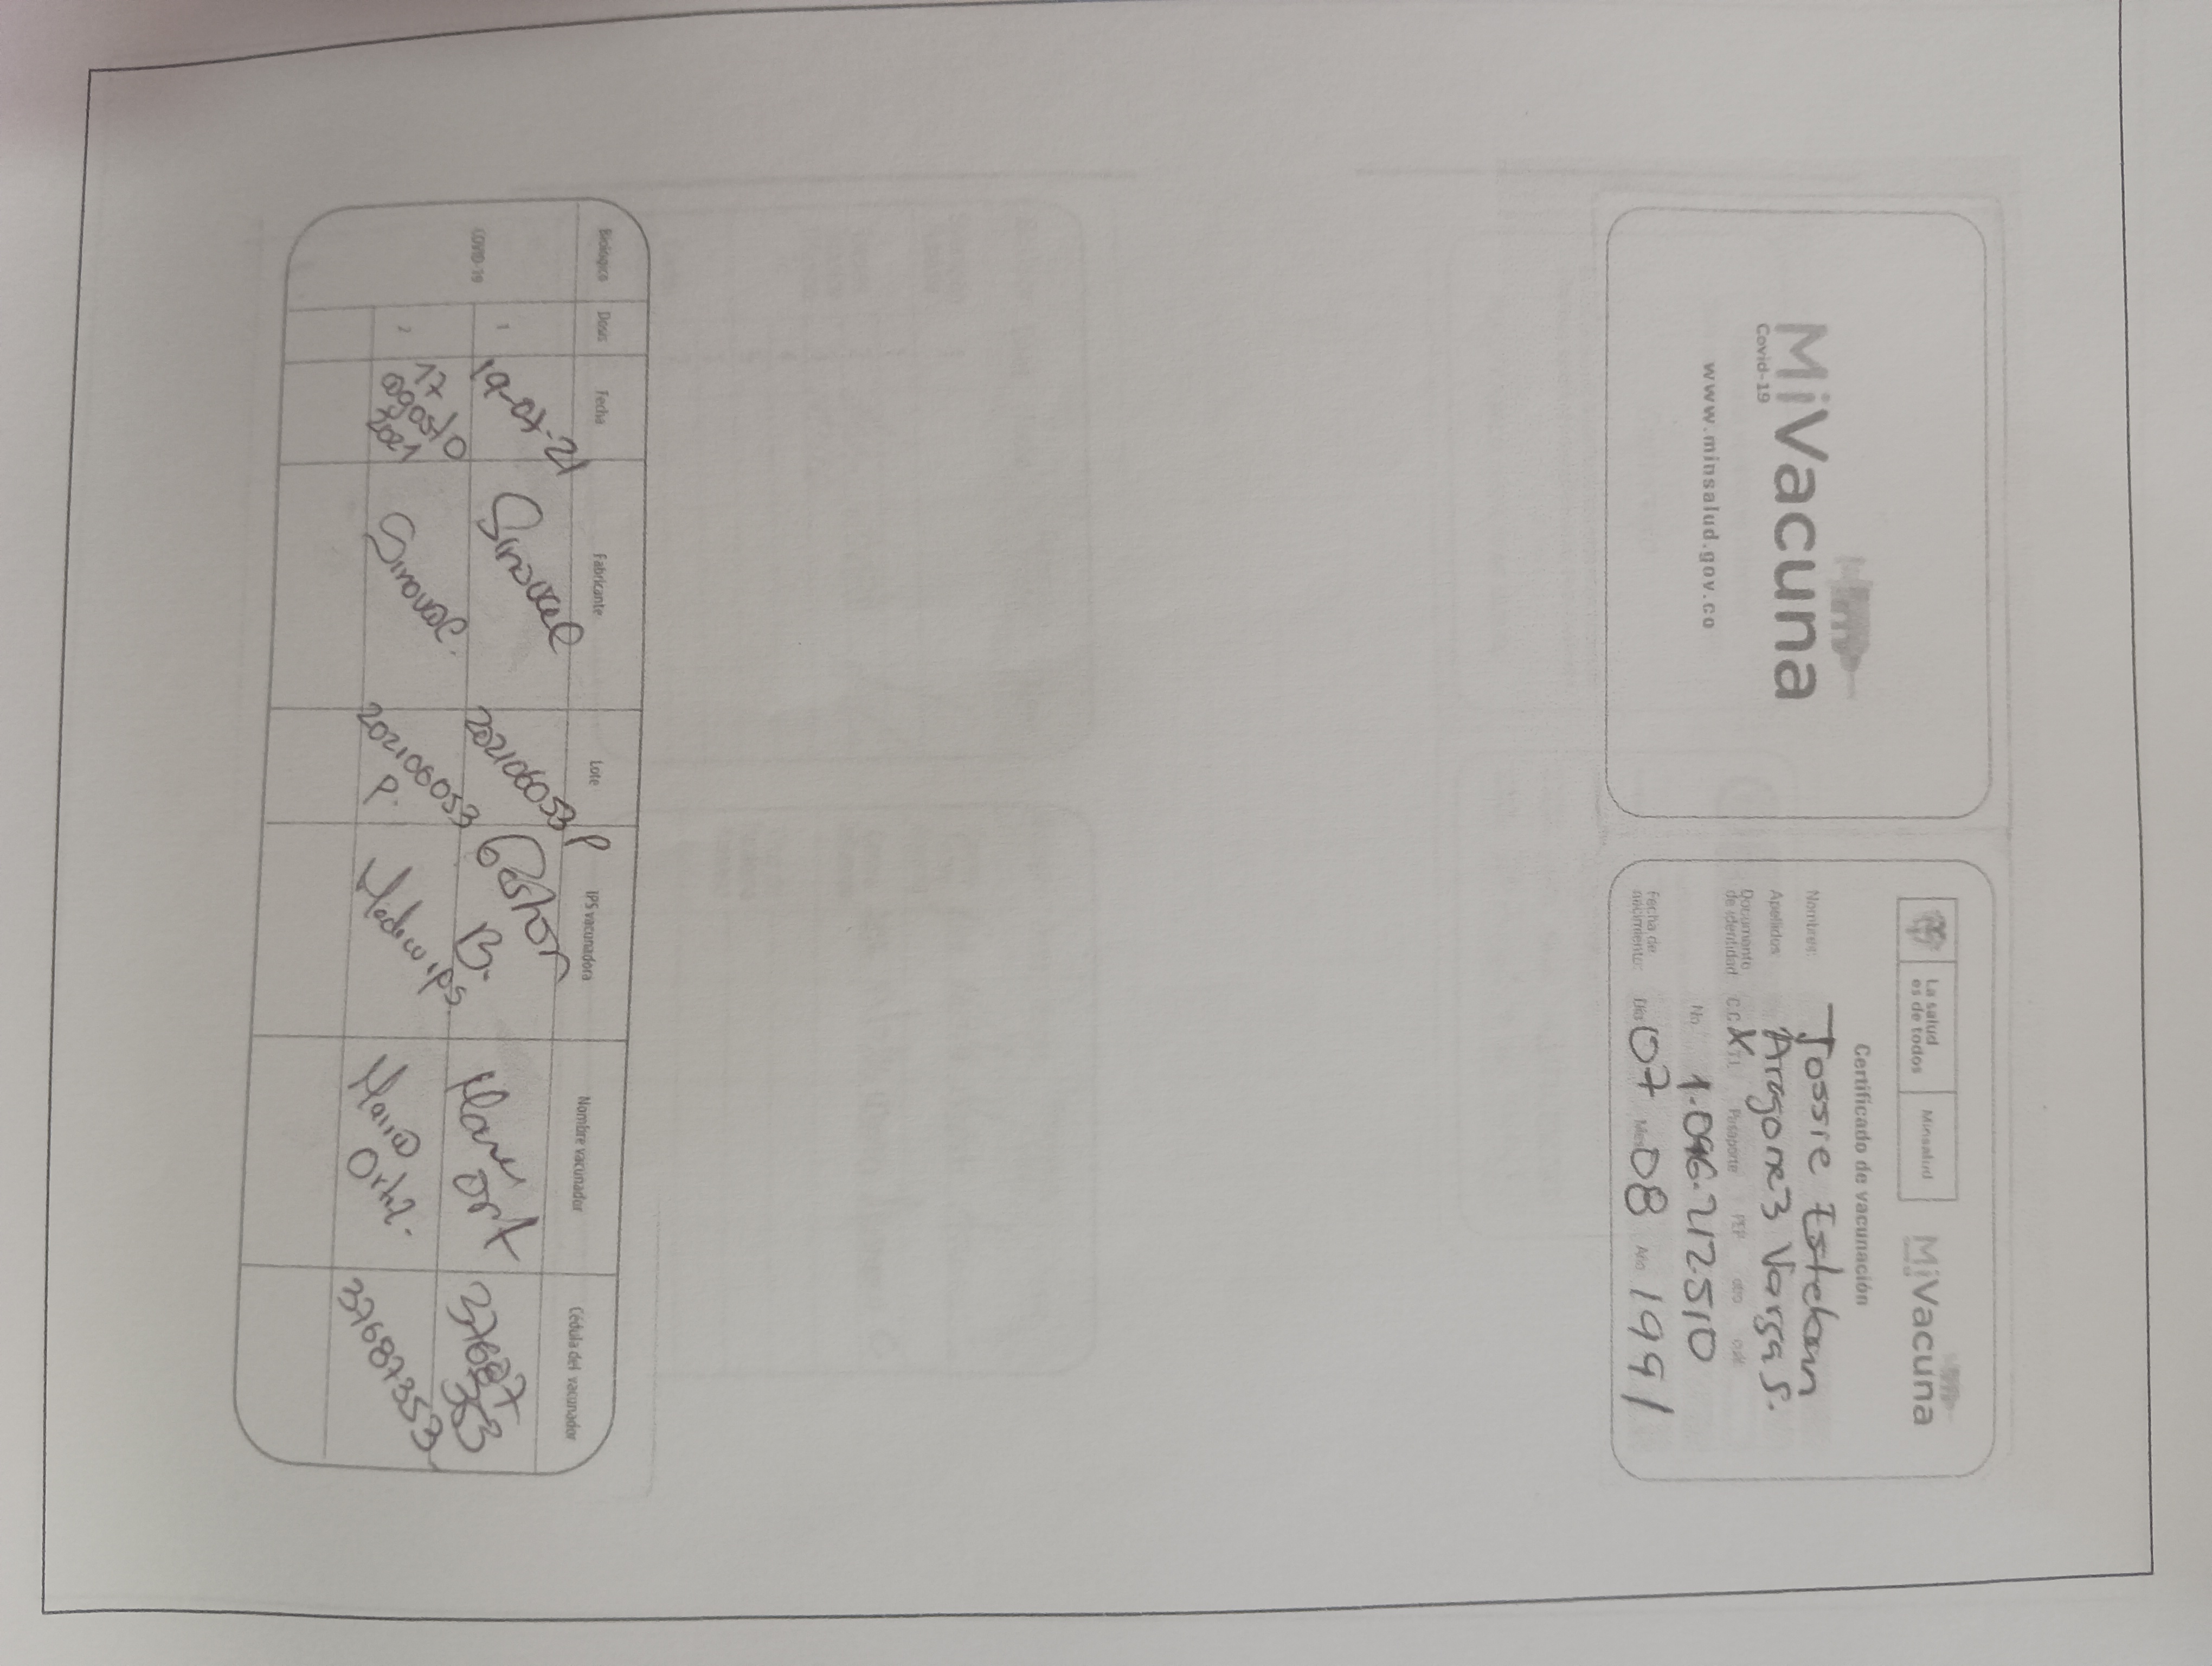 MiVacuna
Covid-19
www.minsalud.gov.co
La salud
es de todos
Minsalud
MiVacuna
Certificado de vacunación
Nombres: Jossie Esteban
Apellidos Aragonez Vargas S.
Documento
de identidad C.C X T.I. Pasaporte PEP otro cuál
No 1.096.212510
Fecha de
nacimiento: Día 07 Mes 08 Año 1991
Biológico Dosis Fecha Fabricante Lote IPS vacunadora Nombre vacunador Cédula del vacunador
COVID-19
1 19-07-21 Sinovac 202106053 P Gestor B. 37687353
2 17 agosto 2021 Sinovac. 202106053 P. Maria Ortiz. 37687353